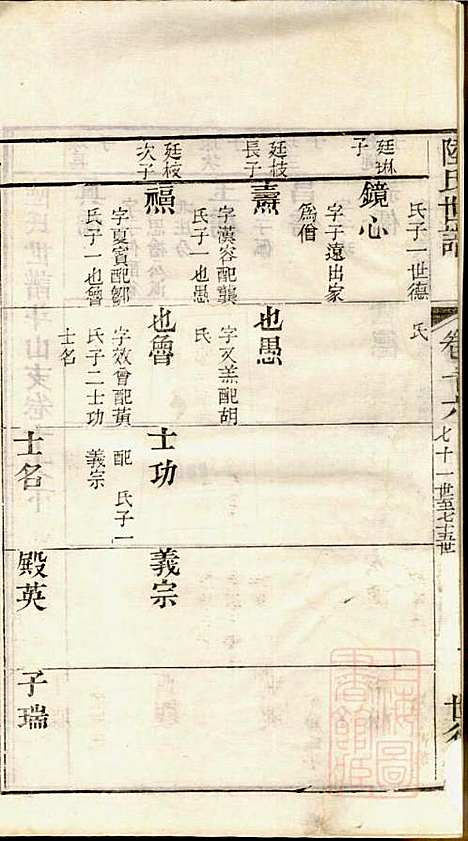 陸氏世譜
卷十六
七十一世至七十五世
氏子一世德
氏
廷琳
子
鏡心
字子遠出家
為僧
廷枝
長子
壽
字漢容配龔
氏子一也愚
也愚
字又羔配胡
氏
廷枝
次子
福
字夏賓配鄒
氏子一也魯
也魯
字效曾配黃
氏子二士功
士名
士功
配 氏子一
義宗
義宗
士名
殿英
子瑞
上海圖
書館藏